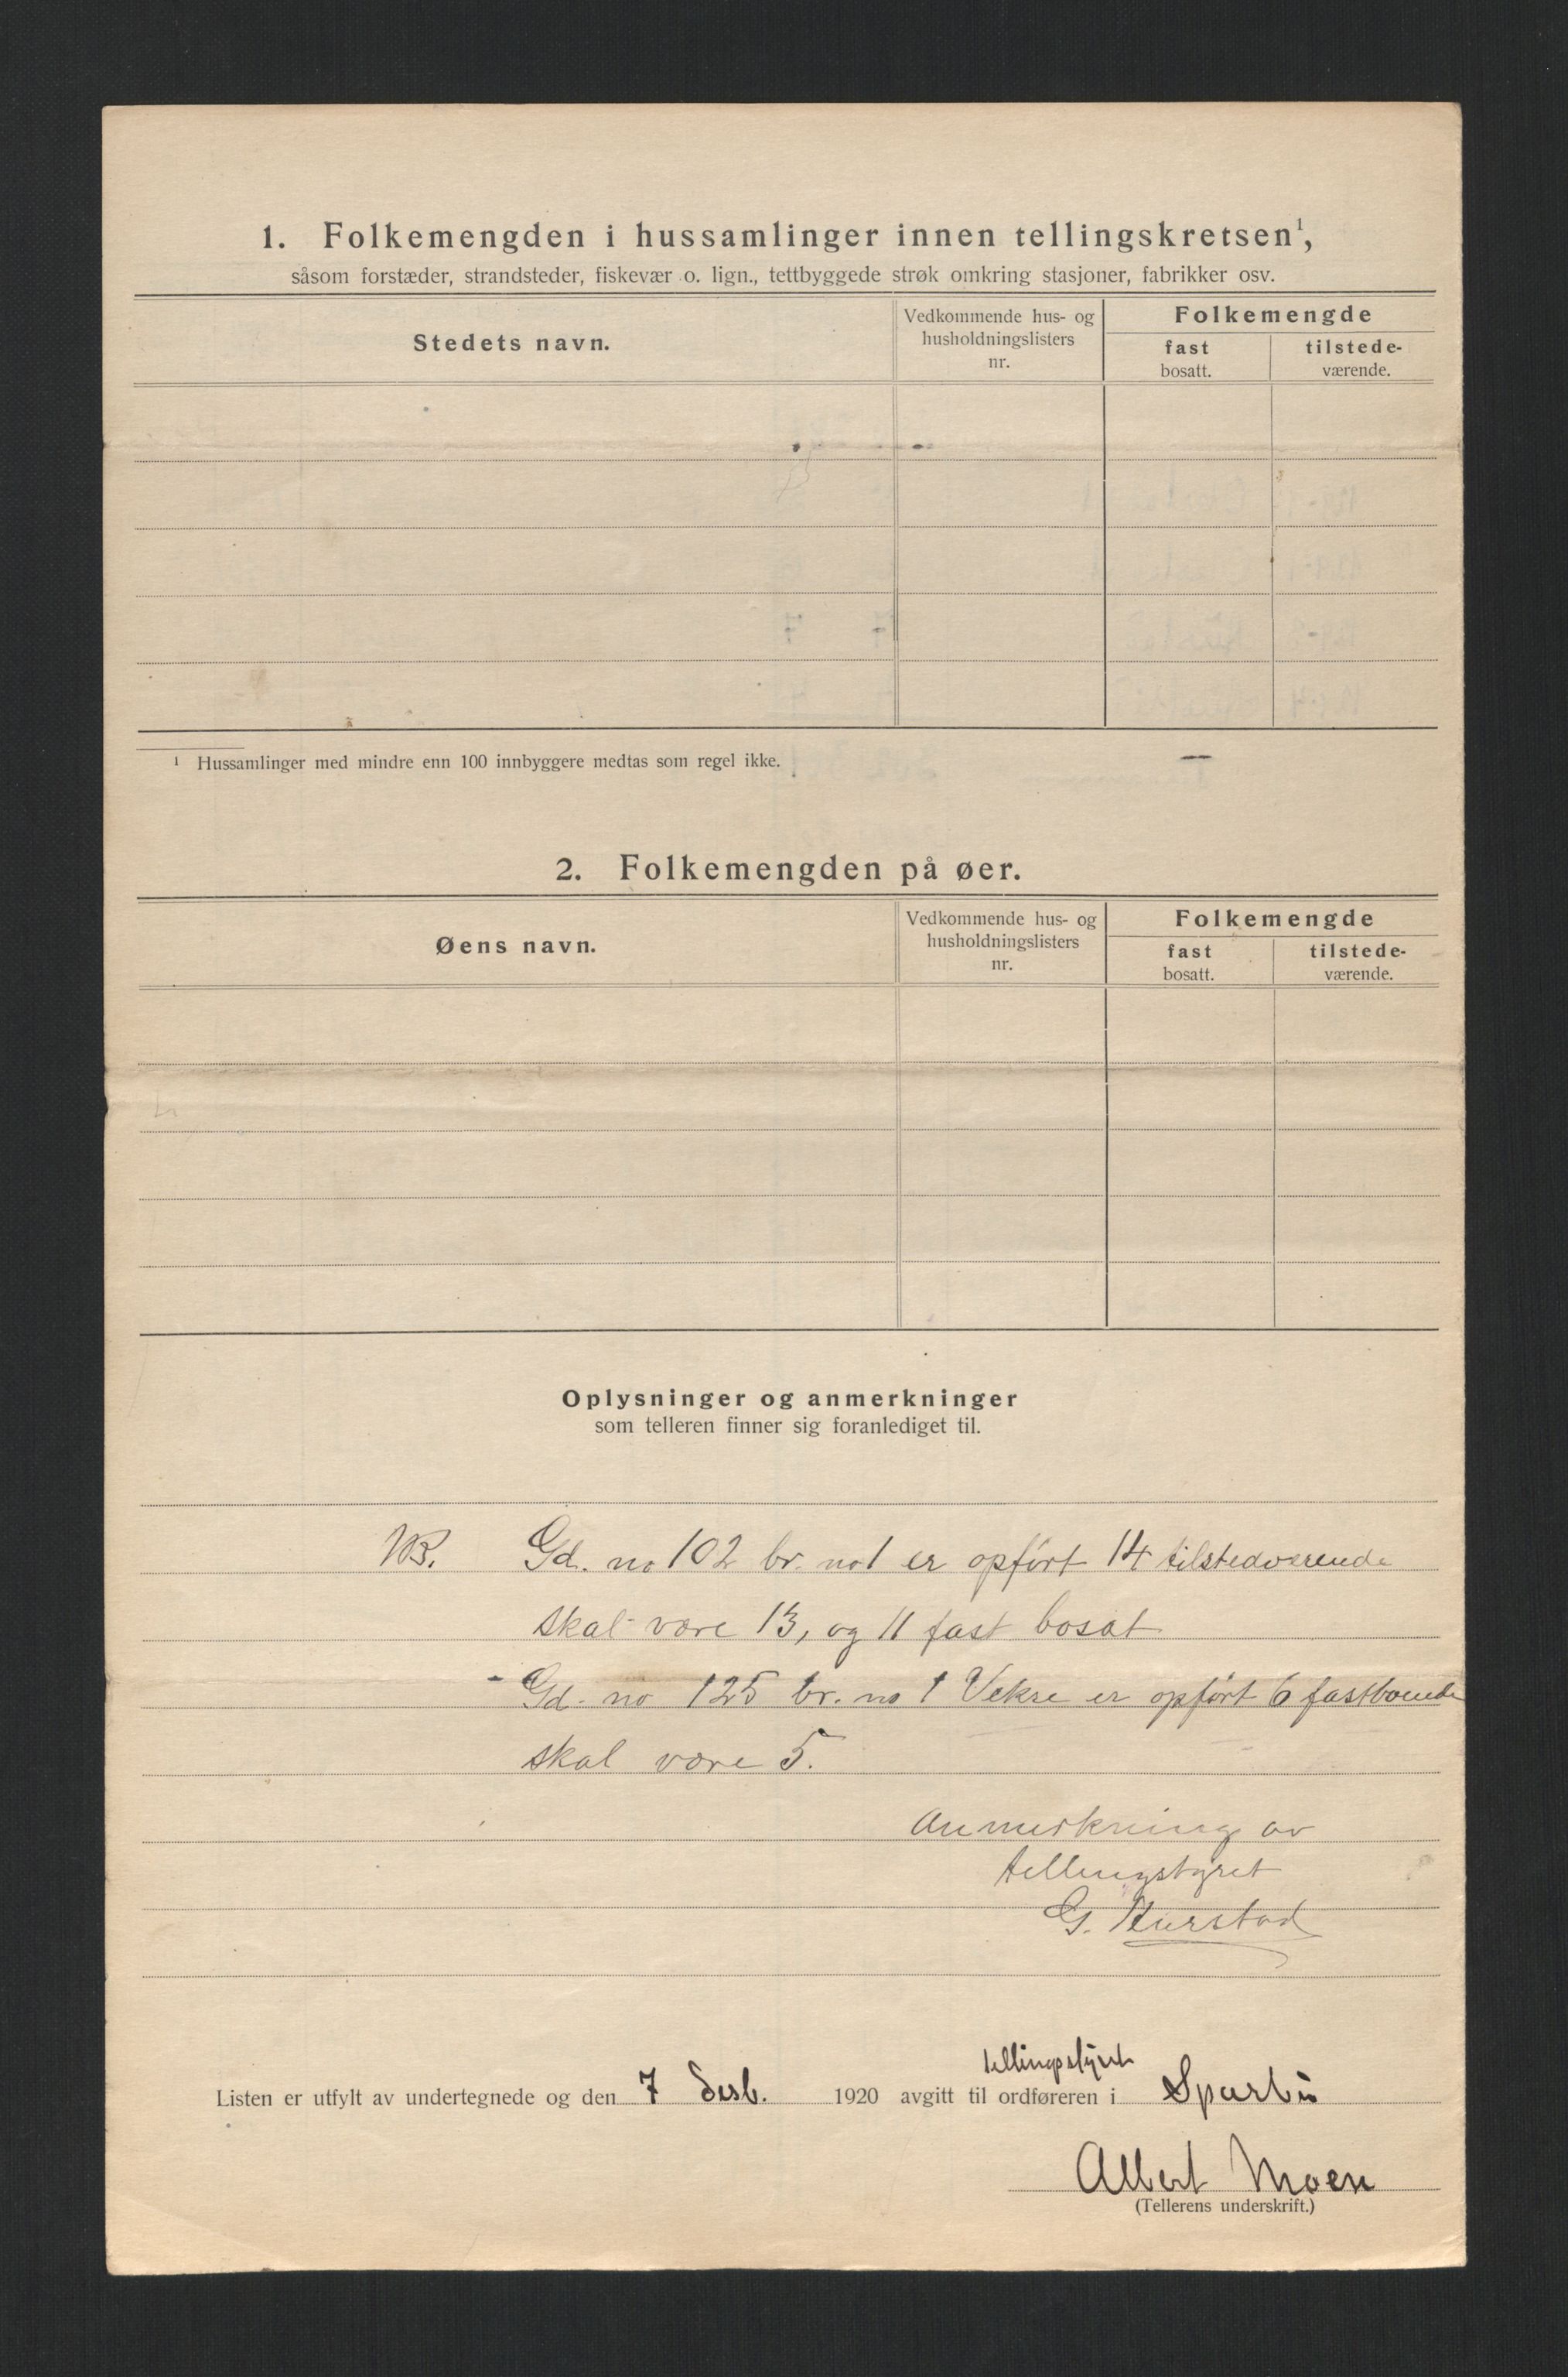 1. Folkemengden i hussamlinger innen tellingskretsen¹,
såsom forstæder, strandsteder, fiskevær o. lign., tettbyggede strøk omkring stasjoner, fabrikker osv.
Stedets navn.
Vedkommende hus- og
husholdningslisters
nr.
Folkemengde
fast
bosatt.
tilstede-
værende.
¹ Hussamlinger med mindre enn 100 innbyggere medtas som regel ikke.
2. Folkemengden på øer.
Øens navn.
Vedkommende hus- og
husholdningslisters
nr.
Folkemengde
fast
bosatt.
tilstede-
værende.
Oplysninger og anmerkninger
som telleren finner sig foranlediget til.
NB. Gd. no 102 br. no 1 er opført 14 tilstedværende
skal være 13, og 11 fast bosat
- Gd. no 125 br. no 1 Vekre er opført 6 fastboende
skal være 5.
Anmerkning av
tellingstyret
G.
tellingsstyret
Listen er utfylt av undertegnede og den 7 Desb. 1920 avgitt til ordføreren i Sparbu
Albert Moen
(Tellerens underskrift.)